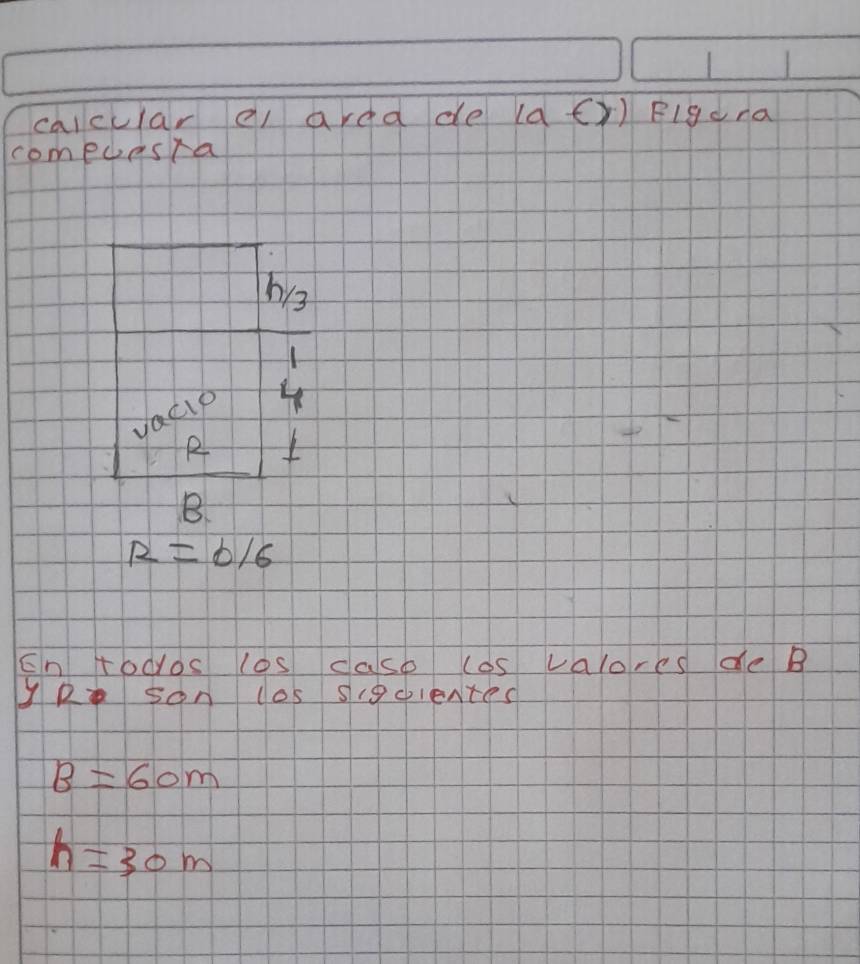 calcular el area de la (x) Figura
compuesta
h/3
1
4
1
vacio
R
B
R = b/6
En todos los caso los valores de B
y R son los siguientes
B = 60m
h = 30 m